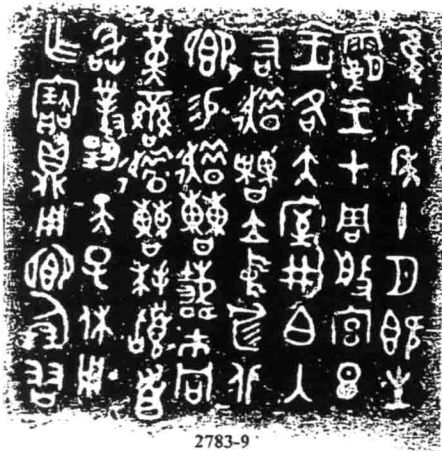 隹七年十月既生
霸王才周般宮旦
王各大室井白入
右趞曹立中廷北
鄉易趞曹𢦏巿冋
黃䜌趞曹拜𩒨首
敢對揚天子休用
乍寶鼎用鄉倗友
2783-9